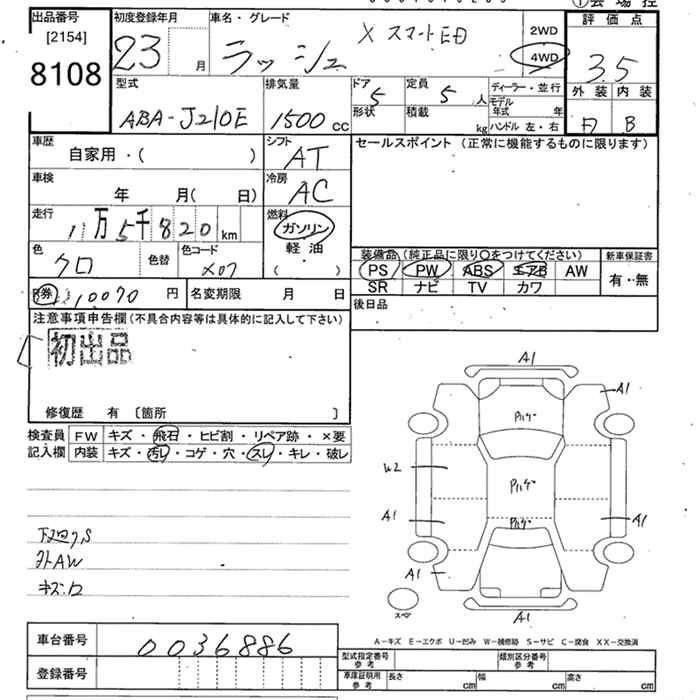 出品番号
[2154]
8108
初度登録年月
23 月
車名・グレード
ラッシュ X スマートED
2WD
4WD
①会場控
評価点
3.5
外装 内装
B
型式
ABA-J210E
排気量
1500 cc
ドア
5
形状
定員
5 人
積載
kg
ディーラー・並行
モデル
年式 年
ハンドル 左・右
車歴
自家用・( )
シフト
AT
セールスポイント (正常に機能するものに限ります)
車検
年 月( 日)
冷房
AC
走行
11万5千820 km
燃料
ガソリン
軽油
( )
色
クロ
色替
色コード
X07
装備品 (純正品に限り○をつけてください)
新車保証書
PS PW ABS エアB AW
SR ナビ TV カワ
有・無
R券 0070 円
名変期限 月 日
後日品
注意事項申告欄 (不具合内容等は具体的に記入して下さい)
初出品
修復歴 有 〔箇所 〕
検査員
記入欄
FW キズ・飛石・ヒビ割・リペア跡・×要
内装 キズ・汚レ・コゲ・穴・スレ・キレ・破レ
下廻りS
外AW
キズ・ワ
A1
A1
Pハゲ
W2
Pハゲ
A1
Pハゲ
A1
A1
A1
スペア
A-キズ E-エクボ U-凹み W-補修跡 S-サビ C-腐食 XX-交換済
車台番号
0036886
登録番号
型式指定番号
参考
類別区分番号
参考
車庫証明用
参考
長さ cm
幅 cm
高さ cm